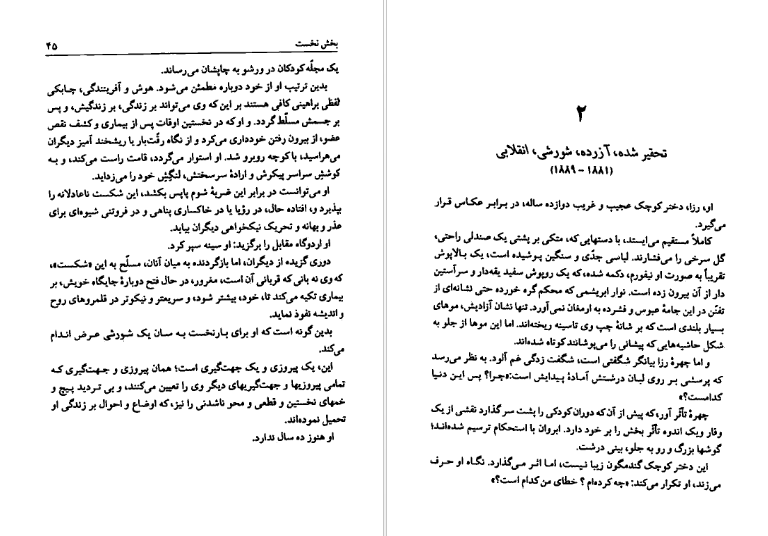 بخش نخست ۴۵
یک مجلّه کودکان در ورشو به چاپشان می‌رساند.
بدین ترتیب او از خود دوباره مطمئن می‌شود. هوش و آفرینندگی، چابکی
لفظی براهینی کافی هستند بر این که وی می‌تواند بر زندگی، بر زندگیش، و پس
بر جسمش مسلّط گردد. و او که در نخستین اوقات پس از بیماری و کشف نقص
عضو، از بیرون رفتن خودداری می‌کرد و از نگاه رقّت‌بار یا ریشخند آمیز دیگران
می‌هراسید، با کوچه روبرو شد. او استوار می‌گردد، قامت راست می‌کند، و به
کوشش سراسر پیکرش و ارادهٔ سرسختش، لنگش خود را می‌زداید.
او می‌توانست در برابر این ضربهٔ شوم پاپس بکشد، این شکست ناعادلانه را
بپذیرد و، افتاده حال، در رؤیا یا در خاکساری پناهی و در فروتنی شیوه‌ای برای
عذر و بهانه و تحریک نیکخواهی دیگران بیابد.
او اردوگاه مقابل را برگزید: او سینه سپر کرد.
دوری گزیده از دیگران، اما بازگردنده به میان آنان، مسلّح به این «شکست»،
که وی نه بانی که قربانی آن است، مغرور، در حال فتح دوبارهٔ جایگاه خویش، بر
بیماری تکیه می‌کند تا، خود، بیشتر شود، و سریعتر و نیکوتر در قلمروهای روح
و اندیشه نفوذ نماید.
بدین گونه است که او برای بار نخست به سان یک شورشی عرض اندام
می‌کند.
این، یک پیروزی و یک جهت‌گیری است؛ همان پیروزی و جهت‌گیری که
تمامی پیروزیها و جهت‌گیریهای دیگر وی را تعیین می‌کنند، و بی تردید پیچ و
خمهای نخستین و قطعی و محو ناشدنی را نیز، که اوضاع و احوال بر زندگی او
تحمیل نموده‌اند.
او هنوز ده سال ندارد.
۲
تحقیر شده، آزرده، شورشی، انقلابی
(۱۸۸۱ – ۱۸۸۹)
او، رزا، دختر کوچک عجیب و غریب دوازده ساله، در برابر عکاس قرار
می‌گیرد.
کاملاً مستقیم می‌ایستد، با دستهایی که، متکی بر پشتی یک صندلی راحتی،
گل سرخی را می‌فشارند. لباسی جدّی و سنگین پوشیده است، یک بالاپوش
تقریباً به صورت او نیفورم، دکمه شده، که یک روپوش سفید یقه‌دار و سرآستین
دار از آن بیرون زده است. نوار ابریشمی که محکم گره خورده حتی نشانه‌ای از
تفنّن در این جامهٔ عبوس و فشرده به ارمغان نمی‌آورد. تنها نشان آزادیش، موهای
بسیار بلندی است که بر شانهٔ چپ وی تاسینه ریخته‌اند. اما این موها از جلو به
شکل حاشیه‌هایی که پیشانی را می‌پوشانند کوتاه شده‌اند.
و اما چهرهٔ رزا بیانگر شگفتی است، شگفت زدگی خم آلود. به نظر می‌رسد
که پرسشی بر روی لبان درشتش آمادهٔ پیدایش است: «چرا؟ پس این دنیا
کدامست؟»
چهرهٔ تأثّر آور، که پیش از آن که دوران کودکی را پشت سر گذارد نقشی از یک
وقار ویک اندوه تأثّر بخش را بر خود دارد. ابروان با استحکام ترسیم شده‌اند؛
گوشها بزرگ و رو به جلو، بینی درشت.
این دختر کوچک گندمگون زیبا نیست، اما اثر می‌گذارد. نگاه او حرف
می‌زند، او تکرار می‌کند: «چه کرده‌ام؟ خطای من کدام است؟»